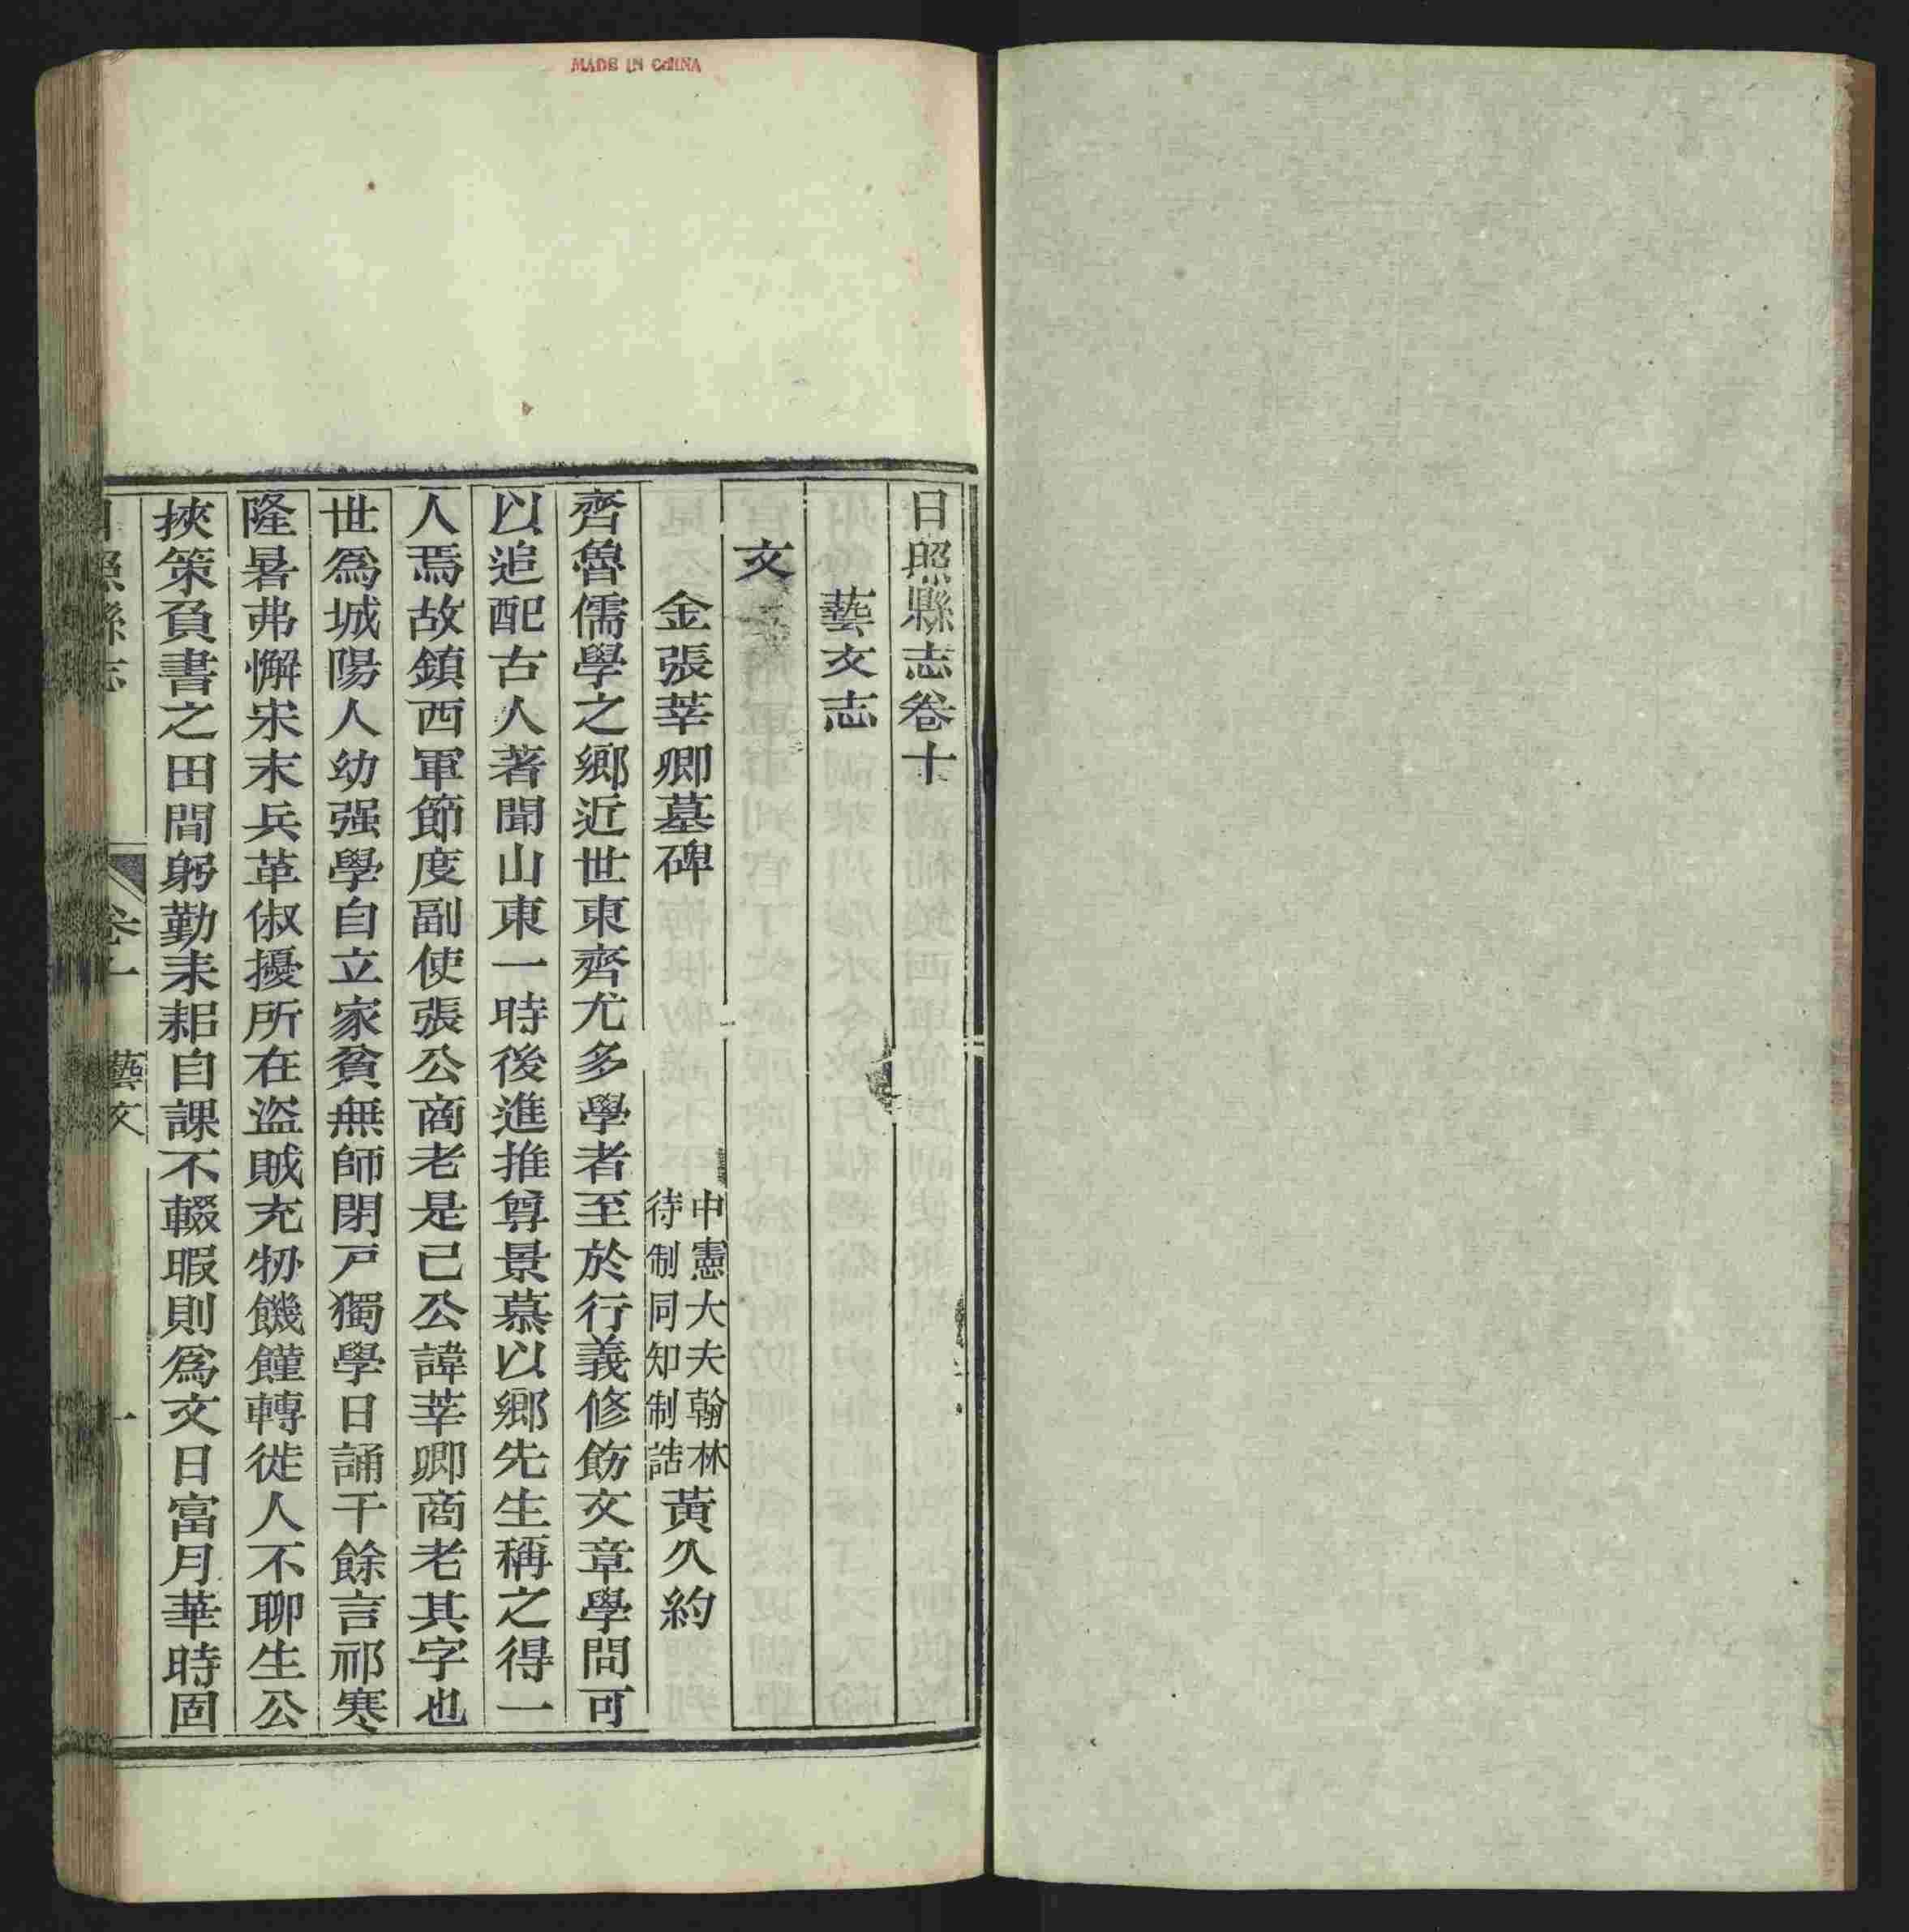 MADE IN CHINA
日照縣志卷十
藝文志
文
金張莘卿墓碑
中憲大夫翰林
待制同知制誥
黃久約
齊魯儒學之鄉近世東齊尤多學者至於行義修飭文章學問可
以追配古人著聞山東一時後進推尊景慕以鄉先生稱之得一
人焉故鎮西軍節度副使張公商老是已公諱莘卿商老其字也
世爲城陽人幼强學自立家貧無師閉戸獨學日誦千餘言祁寒
隆暑弗懈宋末兵革俶擾所在盜賊充牣饑饉轉徙人不聊生公
挾策負書之田間躬勤耒耜自課不輟暇則爲文日富月華時固
日照縣志 卷十 藝文 一